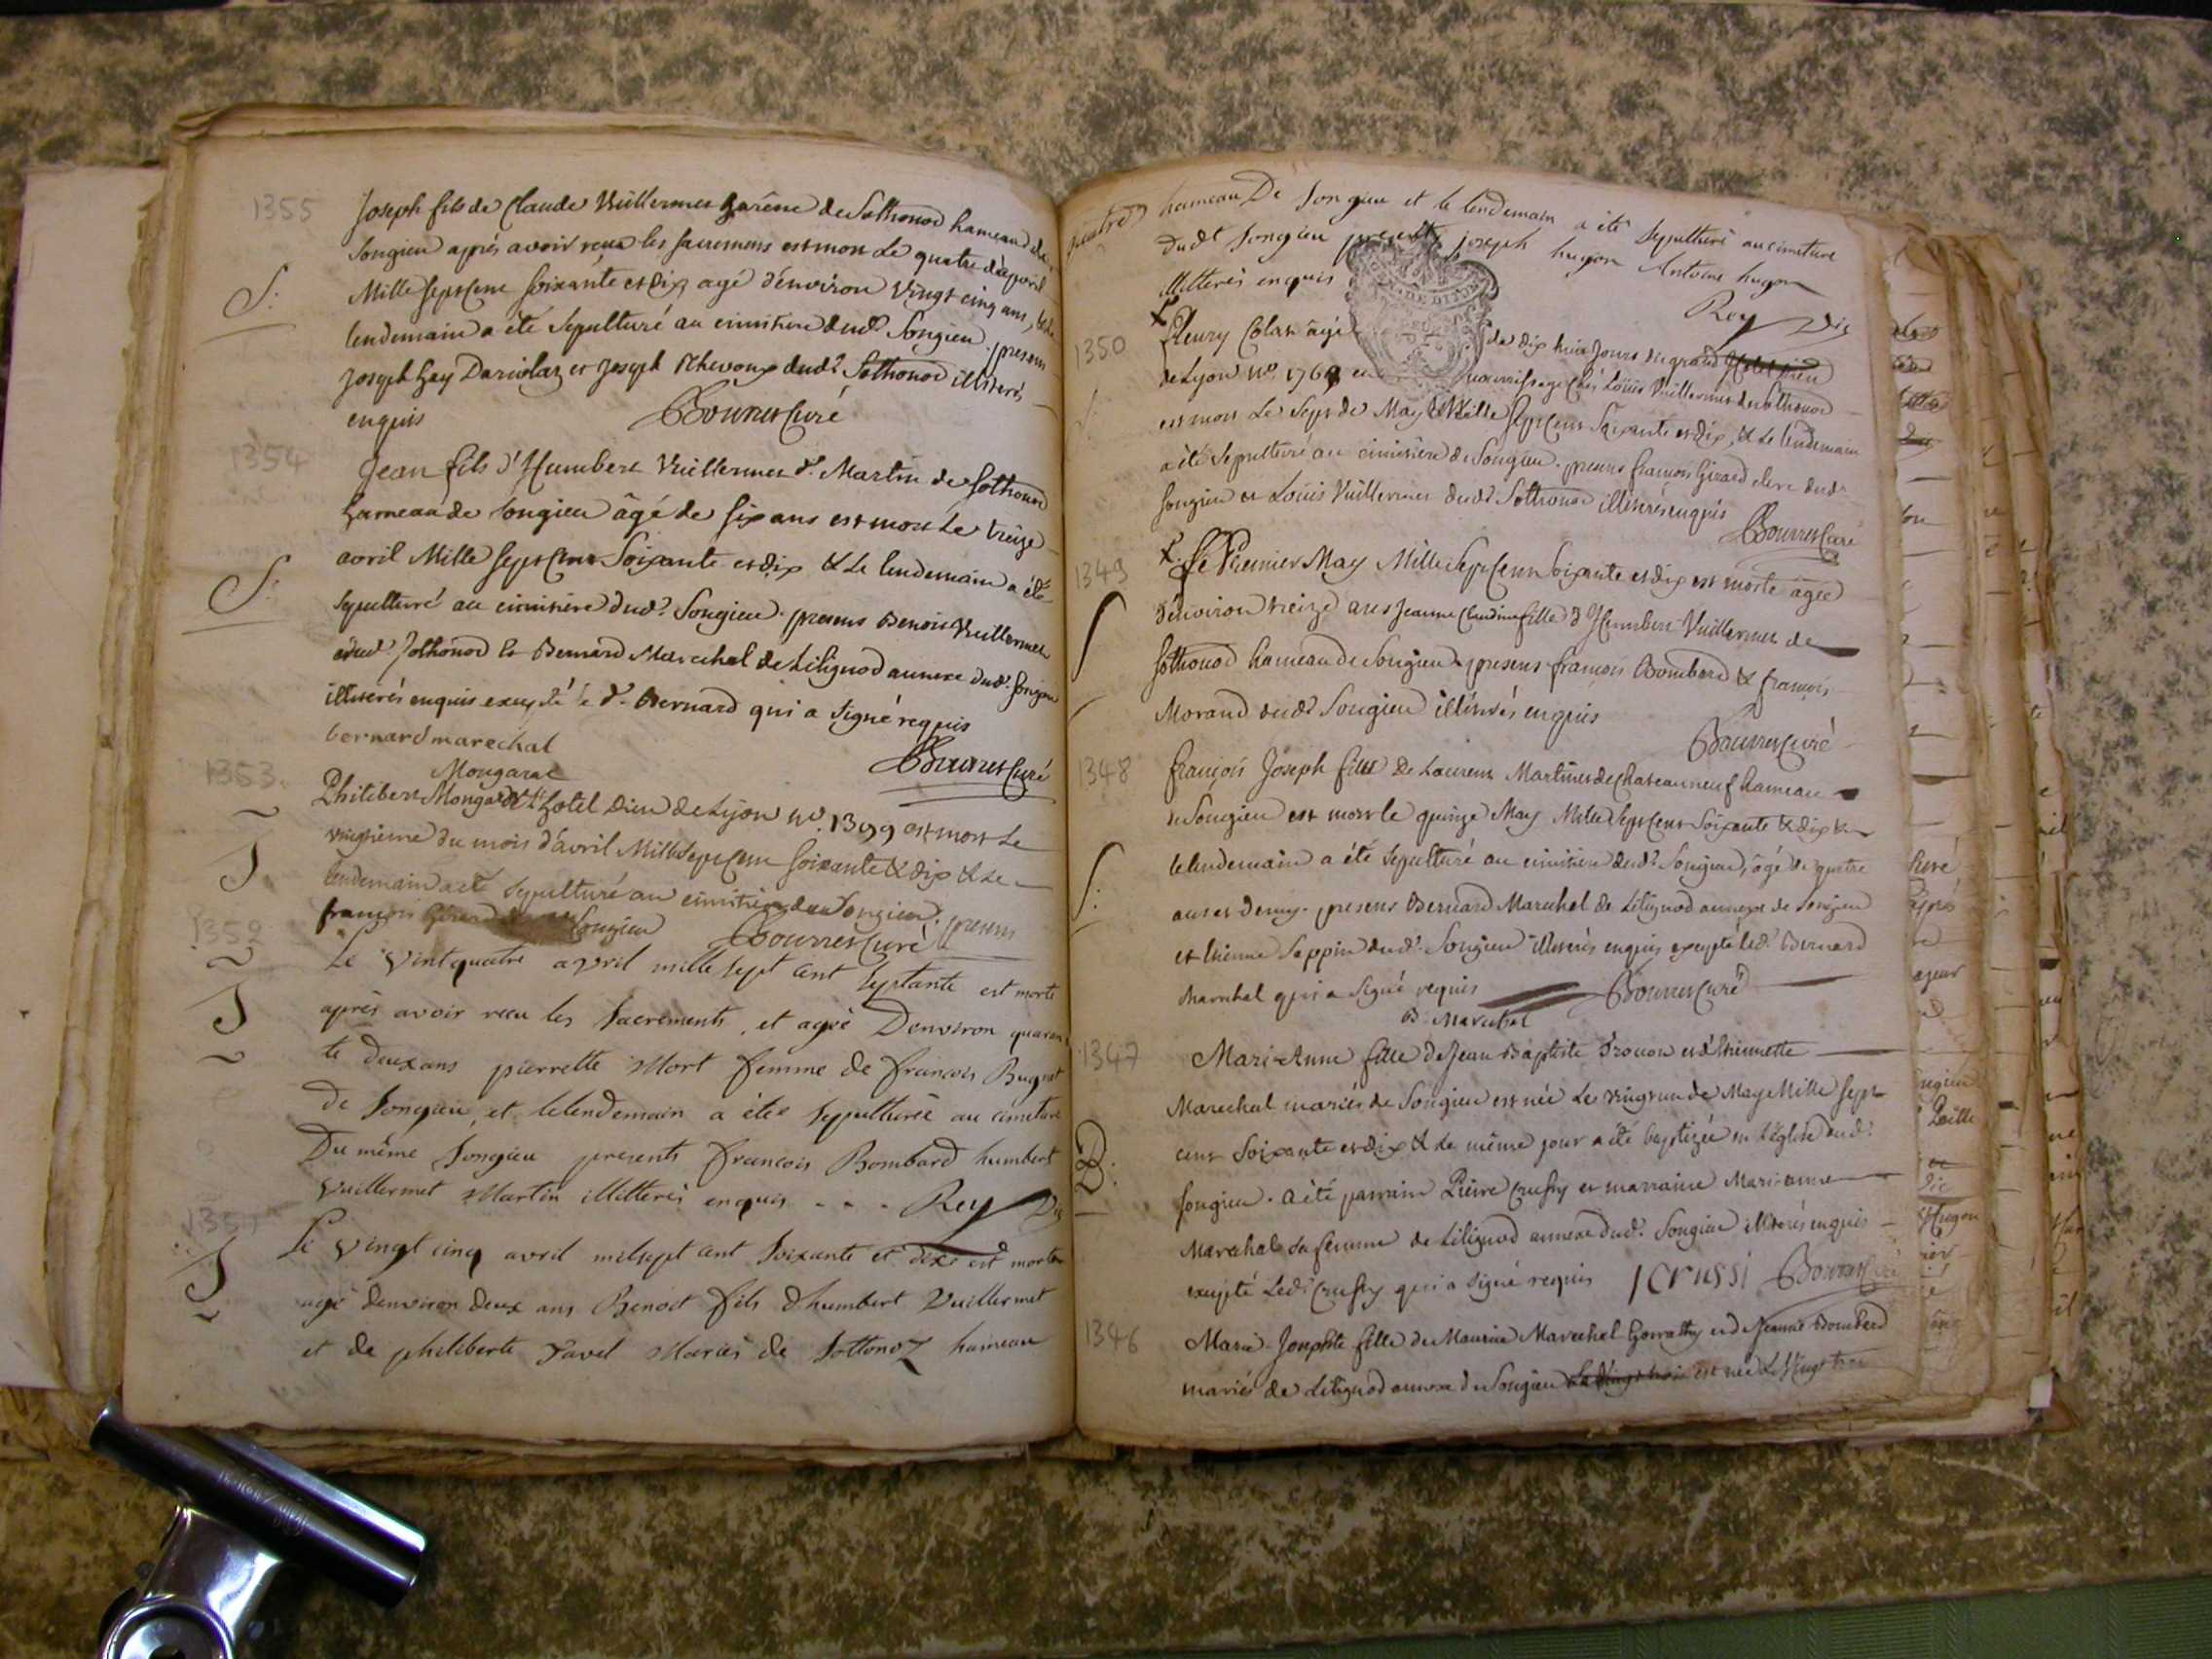 1355
Joseph fils de Claude Vuillermet Garêne de Sothonod hameau de
Songieu après avoir reçu les sacremens est mort Le quatre d'avril
S.
Mille sept Cent soixante et dix, agé d'environ vingt cinq ans, et le
lendemain a été sepulturé au cimitiere dud.t Songieu. presens
Joseph Gay Darivlaz et Joseph Thevoux dud.t Sothonod illiterés
enquis Bourret Curé
1354
Jean fils d'Humbert Vuillermet d.t Martin de Sothonod
hameau de Songieu âgé de six ans est mort Le treize
avril Mille sept Cent Soixante et dix & Le lendemain a été
S.
sepulturé au cimitière dud.t Songieu. presens Benoit Vuillermet
dud.t Sothonod & Bernard Marechal de Lilignod annexe dud.t Songieu
illiterés enquis excepté le d.t Bernard qui a signé requis
bernard marechal
Bourret Curé
1353
Mongarat
Philibert de L'hotel Dieu de Lyon N.o 1399 est mort Le
vingtieme du mois d'avril Mille sept Cent soixante & dix & Le
S.
lendemain a été sepulturé au cimitière dud Songieu. presens
françois Girard Songieu Bourret Curé
1352
Le vint quatre avril mille sept cent septante est morte
S
après avoir recu les sacrements, et agée Denviron quaran
te deux ans pierrette Mort femme de francois Bugnet
de Songieu, et le lendemain a étée sepulturée au cimetiere
Du même Songieu presents francois Bombard humbert
Vuillermet Martin illitterés enquis . . . Rey Vic
1351
Le vingt cinq avril mil sept cent soixante et dixe est mort
S
agé denviron deux ans Benoit fils dhumbert Vuillermet
et de philiberte Pavel Mariés de Sottonoz hameau
hameau De Songieu et le lendemain a été sepulturé au cimetiere
Dudt Songieu presents joseph hugon Antoine hugon
illitterés enquis
Rey Vic
1350
fleury Colas âgé de dix huit Jours du grand Hotel Dieu
de Lyon N.o 1769 en nourrissage chés Loüis Vuillermet de Sothonod
est mort Le sept de May Mille sept Cent Soixante et dix, & Le lendemain
a été sepulturé au cimitière de Songieu. presens françois Girard clerc dud.t
Songieu et Louis Vuillermet dud.t Sothonod illiterés enquis
Bourret Curé
1349
Le Premier May Mille Sept Cent Soixante et dix est morte âgée
d'environ treize ans Jeanne Claudine fille d'Humbert Vuillermet de
Sothonod hameau de Songieu. presens françois Bombard & françois
Morand dud.t Songieu illiterés enquis
Bourret Curé
1348
françois Joseph fils de Laurent Martinet de Chateauneuf hameau
de Songieu est mort le quinze May Mille sept Cent Soixante & dix &
S.
le lendemain a été sepulturé au cimitiere dud.t Songieu, âgé de quatre
ans et demy. presens Bernard Marechal de Lilignod annexe de Songieu
et Etienne Seppin dud.t Songieu illiterés enquis excepté led.t Bernard
Marechal qui a signé requis Bourret Curé
B. Marechal
1347
Mari-Anne fille de Jean Baptiste Drouon et d'Ethiennette
Marechal mariés de Songieu est née Le vingt un de May Mille sept
B.
cent Soixante et dix & Le même jour a été baptizée en l'église dud.t
Songieu. a été parrain Pierre Crussy et marraine Mari-anne
Marechal sa femme de Lilignod annexe dud.t Songieu illiterés enquis
excepté Led.t Crussy qui a signé requis Bourret Curé
1346
Marie-Josephte fille de Maurice Marechal et de Jeanne Bombard
mariés de Lilignod annexe de Songieu est née Le Vingt trois